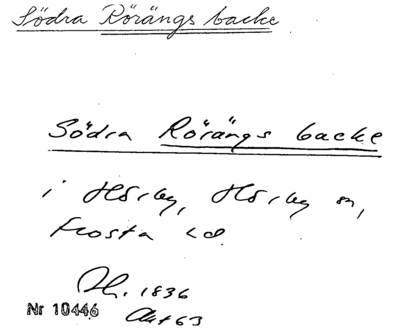 Södra Rörängs backe
Södra Rörängs backe
i Hörby, Hörby sn,
Frosta hd
Sk. 1836
Nr 10446 Akt 63